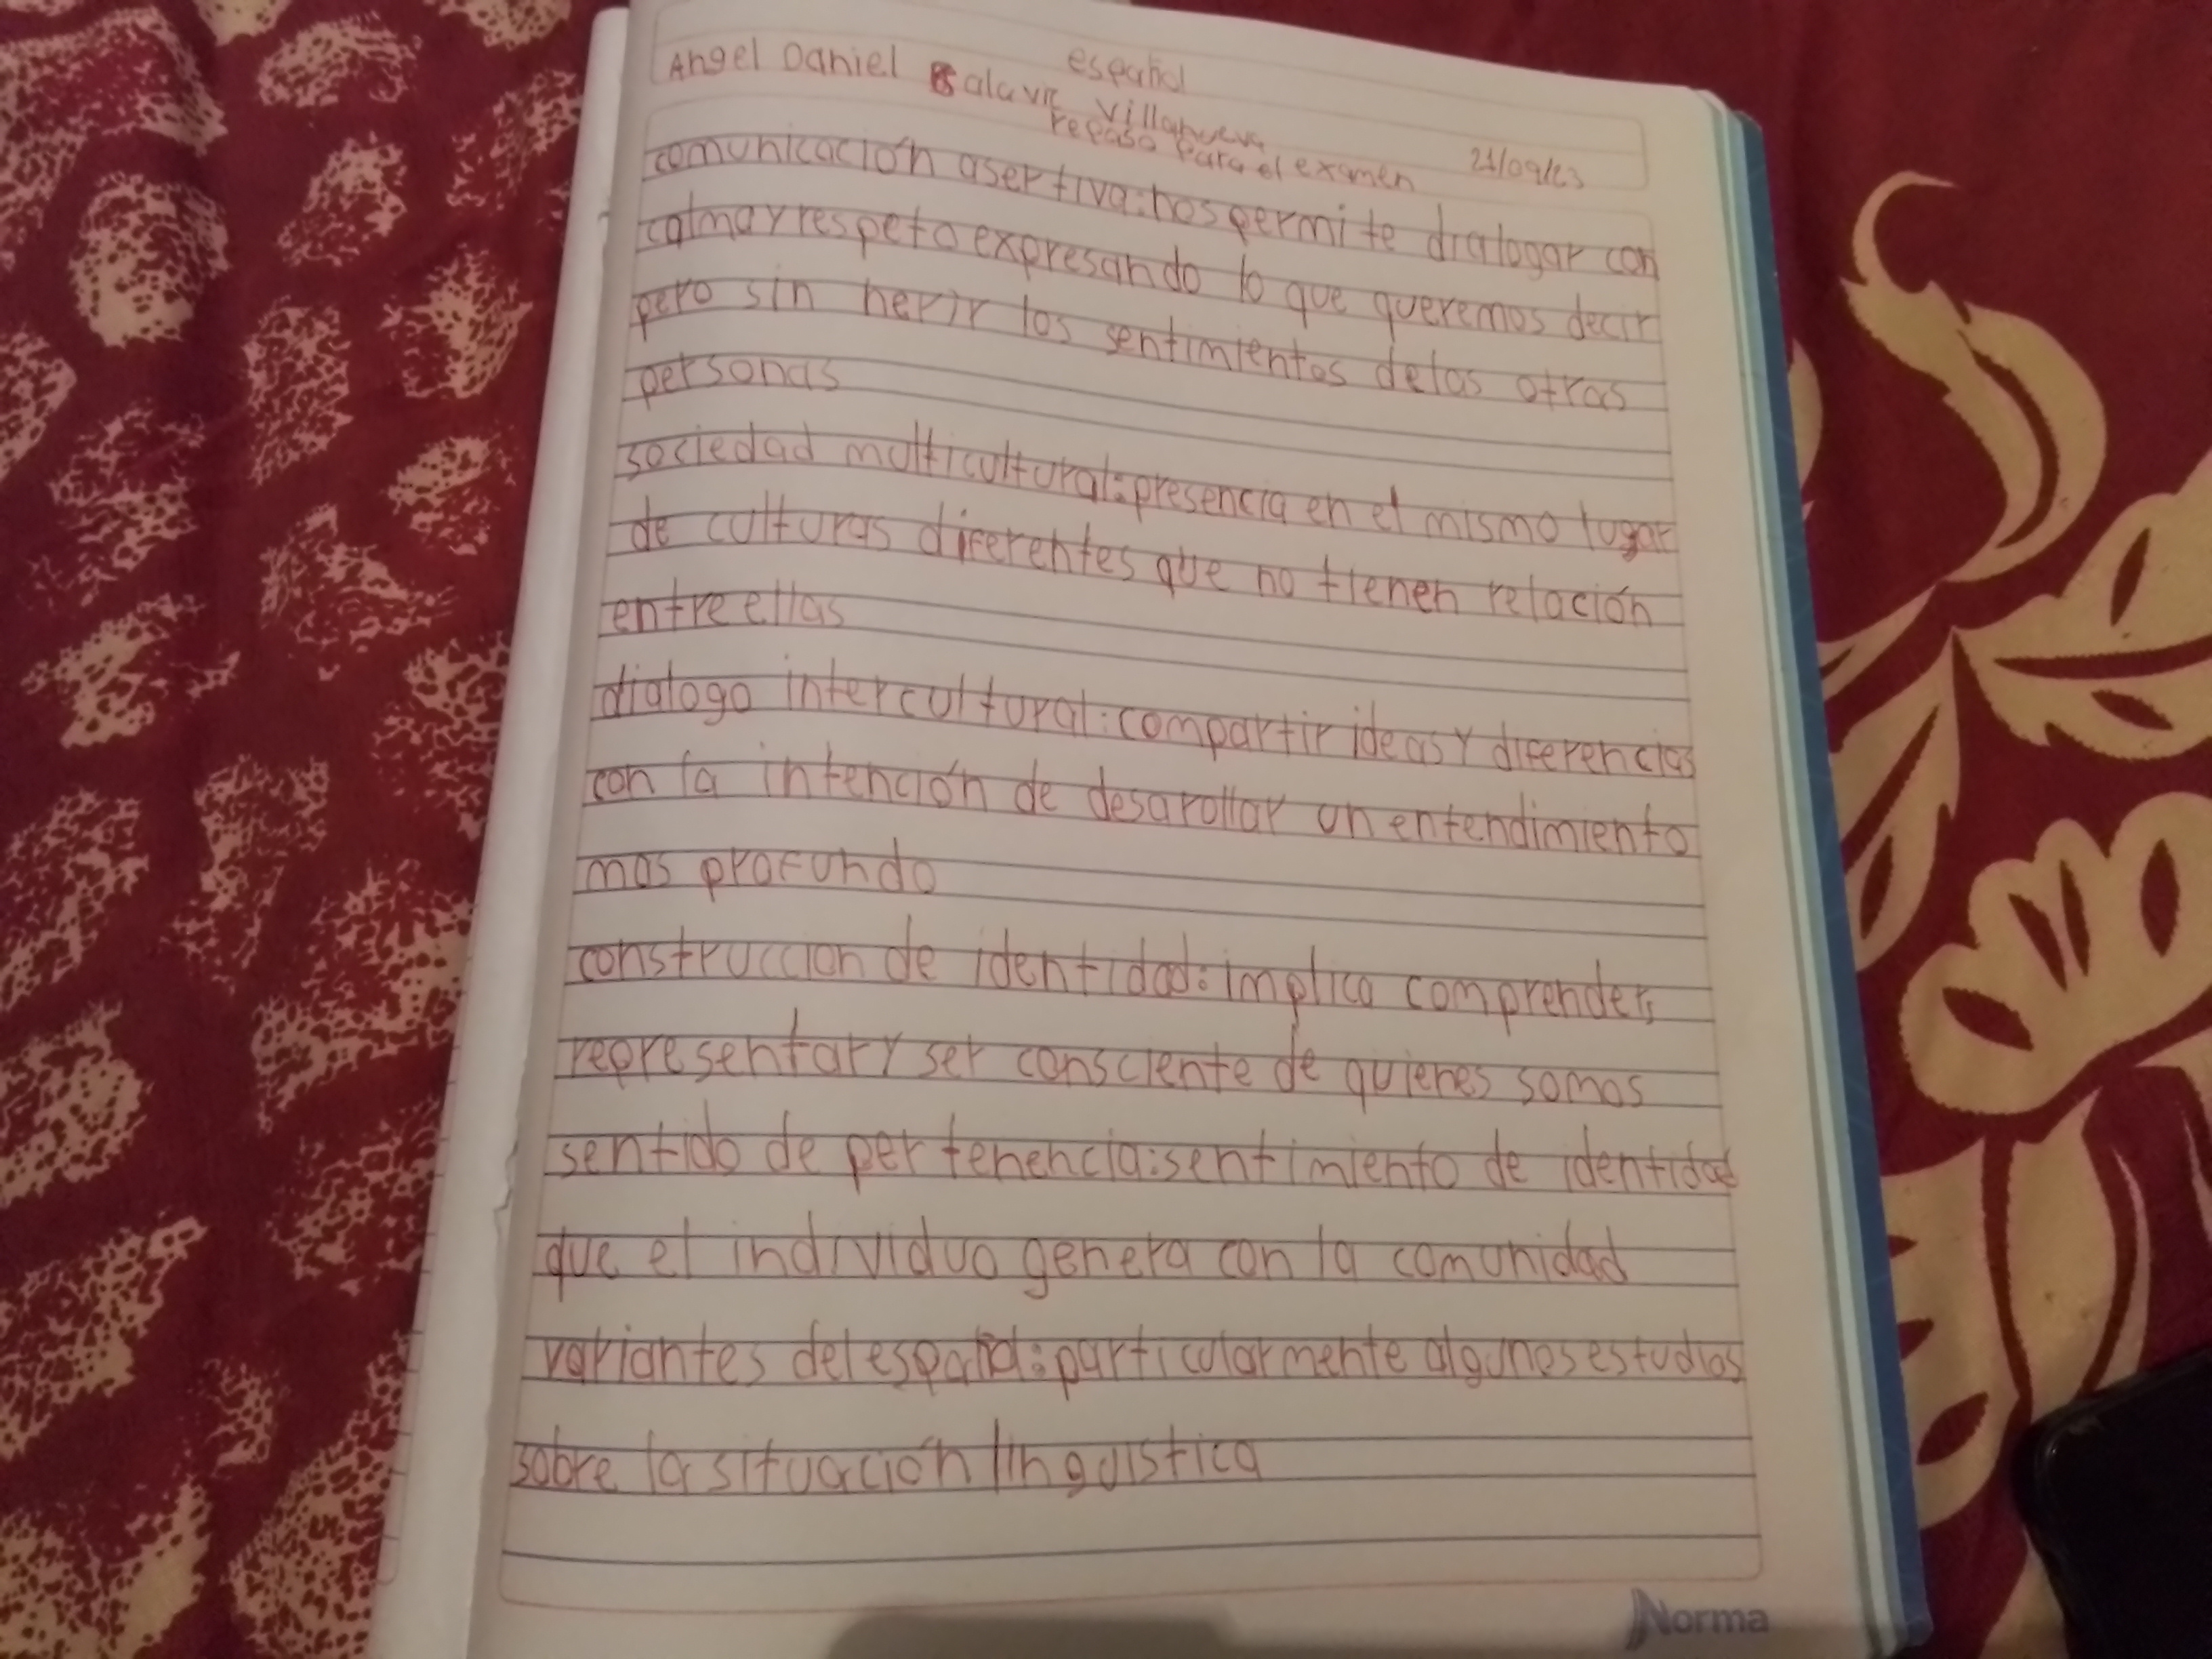 español
Angel Daniel Salavit Villanueva
repaso para el examen 21/09/23
comunicación asertiva: nos permite dialogar con
calma y respeto expresando lo que queremos decir
pero sin herir los sentimientos de las otras
personas
sociedad multicultural: presencia en el mismo lugar
de culturas diferentes que no tienen relación
entre ellas
dialogo intercultural: compartir ideas y diferencias
con la intención de desarollar un entendimiento
mas profundo
construccion de identidad: implica comprender,
representar y ser consciente de quienes somos
sentido de pertenencia: sentimiento de identidad
que el individuo genera con la comunidad
variantes del español: particularmente algunos estudios
sobre la situación linguistica
Norma